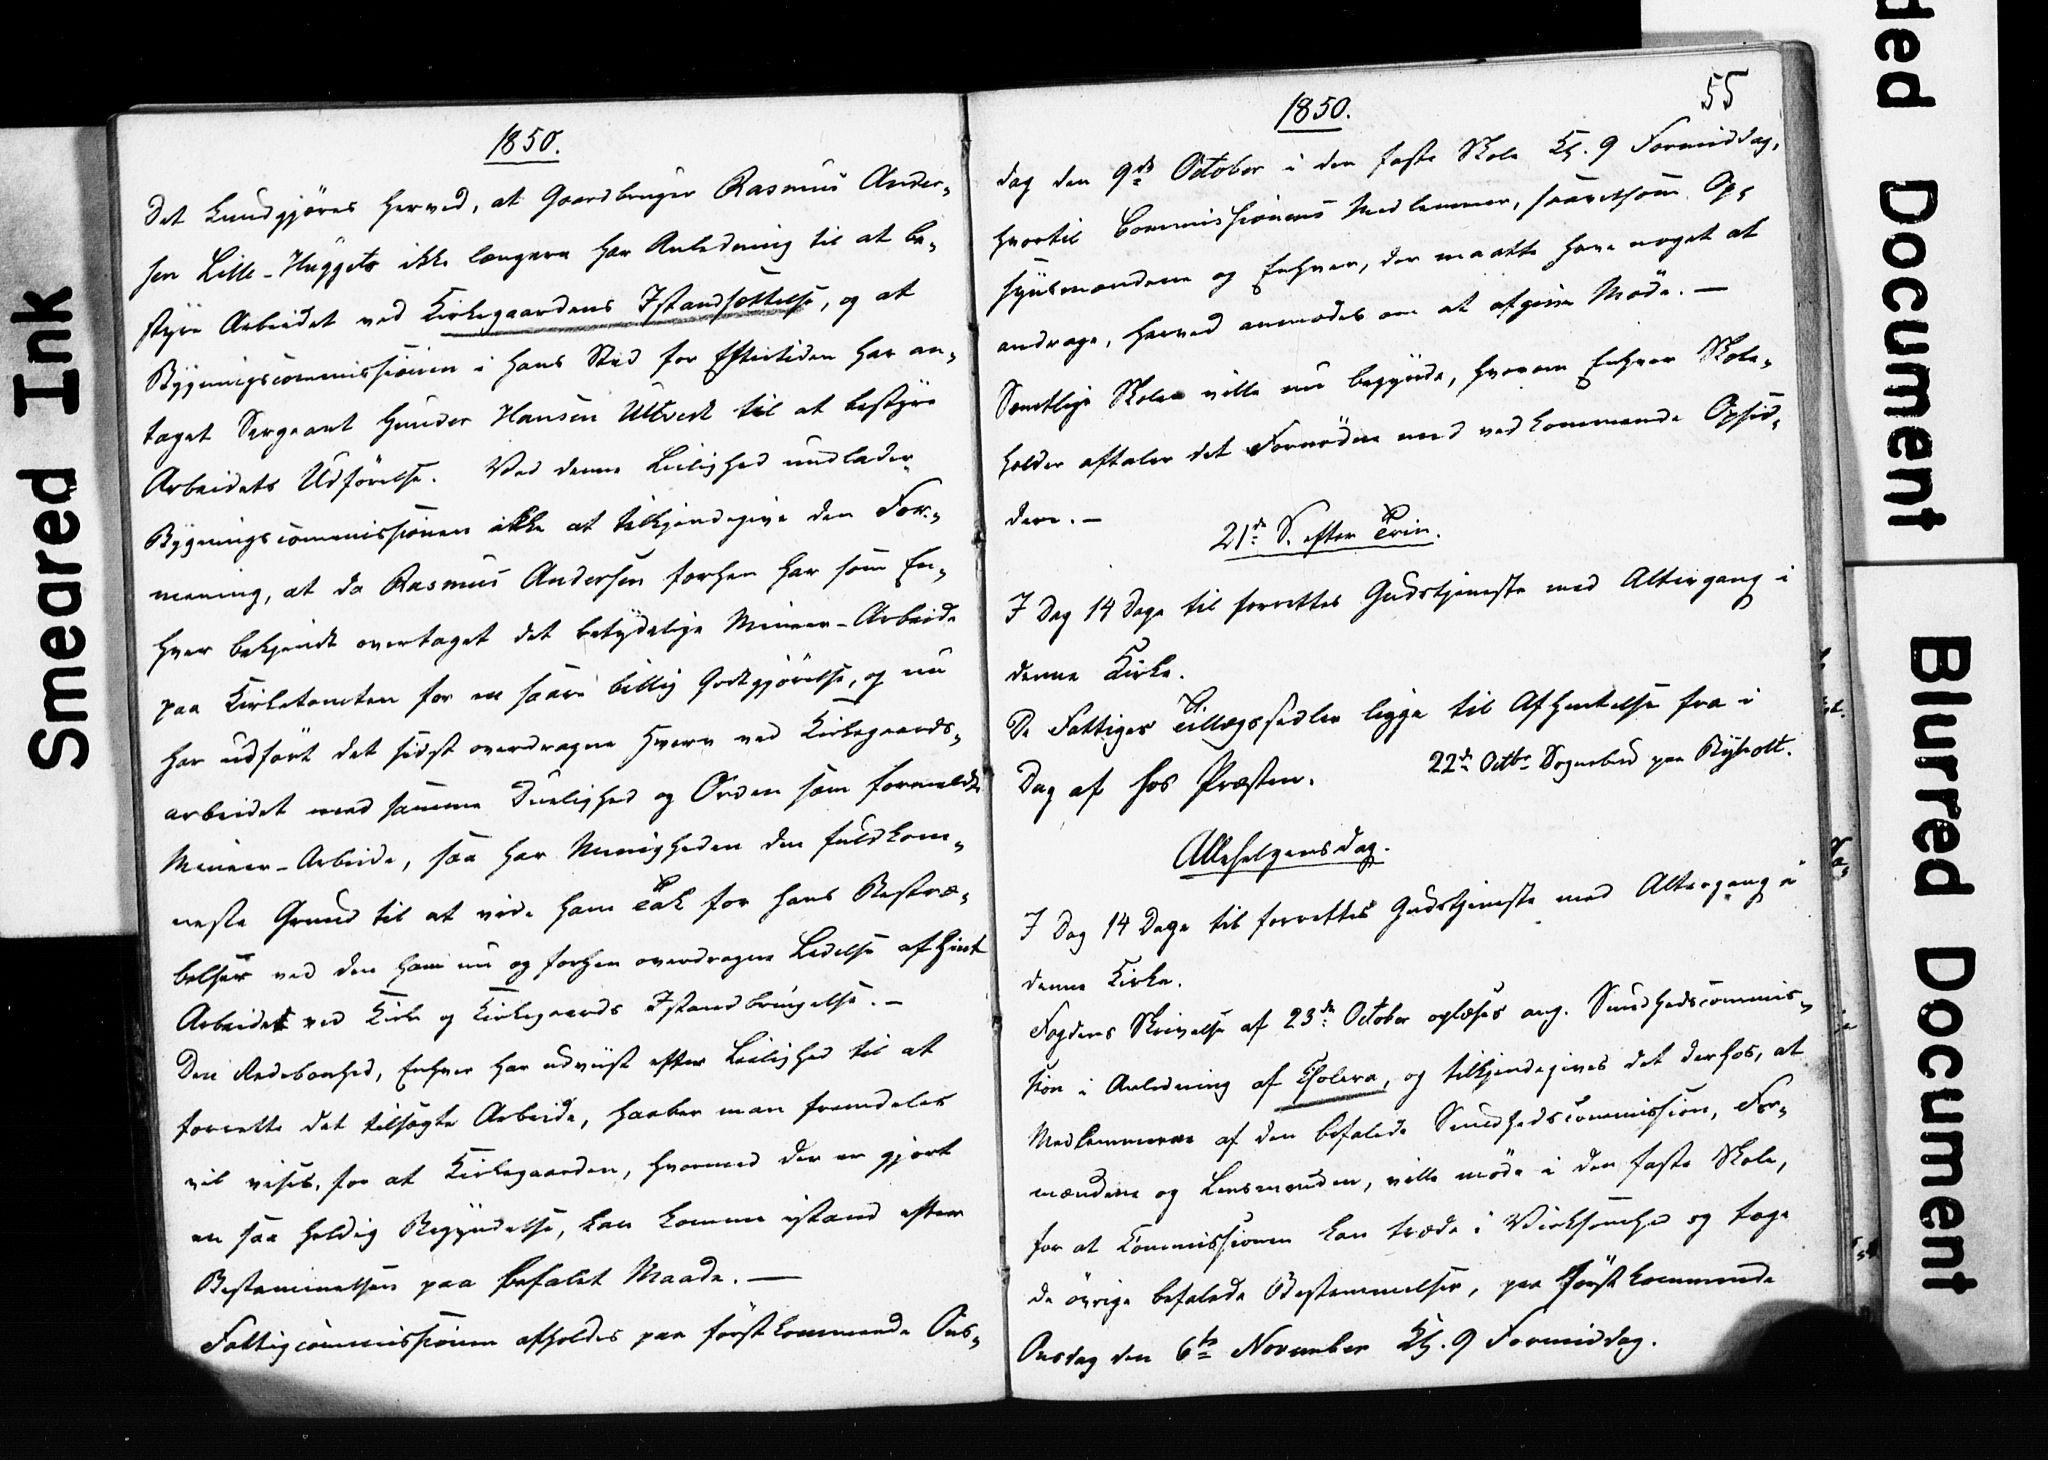 1850.
Det kundgjöres herved, at Gaardbruger Rasmus Ander-
sen Lille-Huggets ikke længere har Anledning til at be-
styre Arbeidet ved Kirkegaardens Istandsættelse, og at
Bygningscommissionen i hans Sted for Eftertiden har an-
taget Sergeant Gunder Hansen Ultvedt til at bestyre
Arbeidets Udförelse. Ved denne Leilighed undlader
Bygningscommissionen ikke at tilkjendegive den For-
mening, at da Rasmus Andersen forhen har som En-
hver bekjendt overtaget det betydelige Mineer-Arbeide
paa Kirketomten for en saare billig Godtgjörelse, og nu
har udfört det sidst overdragne Hverv ved Kirkegaards-
arbeidet med samme Duelighed og Orden som formeldte
Mineer-Arbeide, saa har Menigheden den fuldkom-
neste Grund til at vide ham Tak for hans Bestræ-
belser ved den ham nu og forhen overdragne Ledelse af
Arbeidet ved Kirke og Kirkegaards Istandbringelse. –
Den Redebonhed, Enhver har udviist efter Leilighed til at
forrette det tilsagte Arbeide, haaber man fremdeles
vil vises, for at Kirkegaarden, hvormed der er gjort
en saa heldig Begyndelse, kan komme istand efter
Bestemmelsen paa befalet Maade. —
Fattigcommissionen afholdes paa förstkommende Ons-
55
1850.
dag den 9de October i den faste Skole Kl. 9 Formiddag,
hvortil Commissionens Medlemmer, saavelsom Op-
synsmændene og Enhver, der maatte have noget at
andrage, herved anmodes om at afgive Möde. —
Samtlige Skoler ville nu begynde, hvorom Enhver Skole-
holder aftaler det Fornödne med vedkommende Opsid-
dere. –
21de S. efter Trin.
I Dag 14 Dage til forrettes Gudstjeneste med Altergang i
denne Kirke.
De Fattiges Tillægssedler ligge til Afhentelse fra i
Dag af hos Præsten.
22de Octbr Sognebud paa Ryholt.
Allehelgensdag.
I Dag 14 Dage til forrettes Gudstjeneste med Altergang i
denne Kirke.
Fogdens Skrivelse af 23de October oplæses ang. Sundhedscommis-
sion i Anledning af Cholera, og tilkjendegives det derhos, at
Medlemmerne af den befalede Sundhedscommission, For-
mændene og Lensmanden, ville möde i den faste Skole,
for at Commissionen kan træde i Virksomhed og tage
de övrige befalede Bestemmelser, paa förstkommende
Onsdag den 6te November Kl. 9 Formiddag.
Smeared Ink
ded Document
Blurred Document